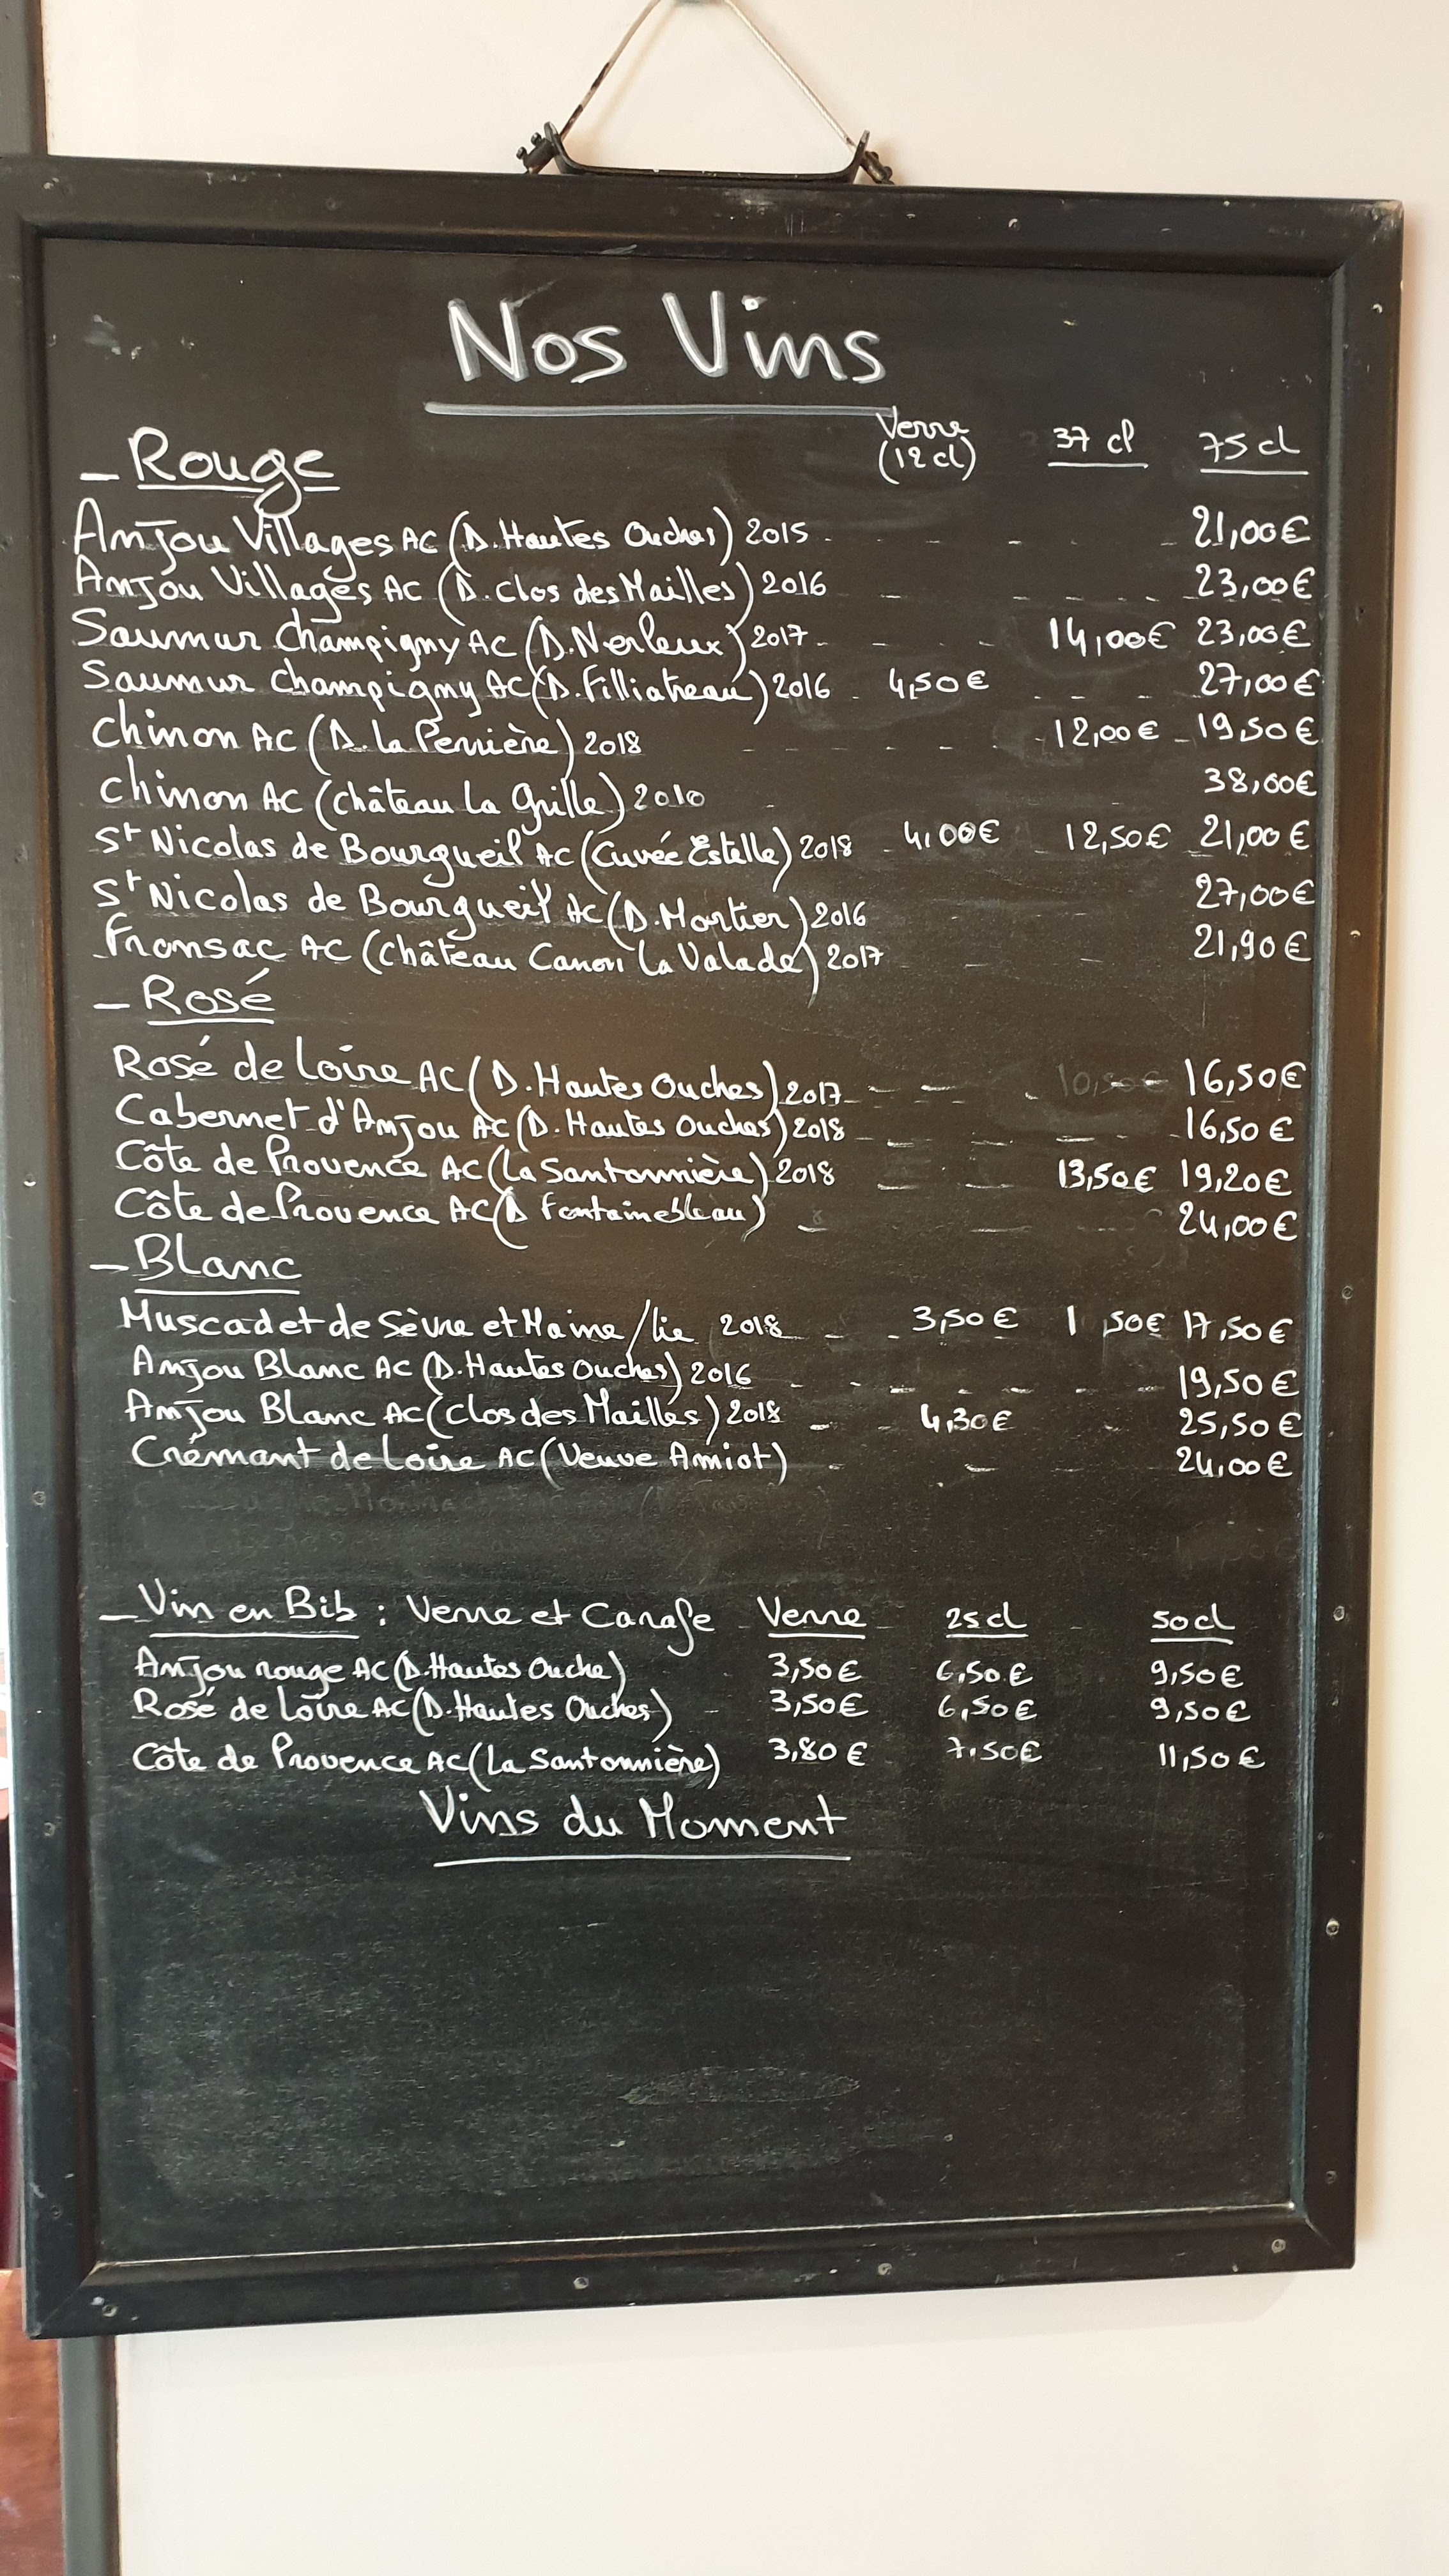 Nos Vins
Verre
(12 cl) 37 cl 75 cl
- Rouge
Anjou Villages AC (D. Hautes Ouches) 2015 21,00€
Anjou Villages AC (D. Clos des Mailles) 2016 23,00€
Saumur Champigny AC (D. Nerleux) 2017 14,00€ 23,00€
Saumur Champigny AC (D. Filliatreau) 2016 4,50€ 27,00€
Chinon AC (D. La Perrière) 2018 12,00€ 19,50€
Chinon AC (Château La Grille) 2010 38,00€
St Nicolas de Bourgueil AC (Cuvée Estelle) 2018 4,00€ 12,50€ 21,00€
St Nicolas de Bourgueil AC (D. Mortier) 2016 27,00€
Fronsac AC (Château Canon La Valade) 2017 21,90€
- Rosé
Rosé de Loire AC (D. Hautes Ouches) 2017 16,50€
Cabernet d'Anjou AC (D. Hautes Ouches) 2018 16,50€
Côte de Provence AC (La Santonnière) 2018 13,50€ 19,20€
Côte de Provence AC (D Fontainebleau) 24,00€
- Blanc
Muscadet de Sèvre et Maine /lie 2018 3,50€ 1 ,50€ 17,50€
Anjou Blanc AC (D. Hautes Ouches) 2016 19,50€
Anjou Blanc AC (Clos des Mailles) 2018 4,30€ 25,50€
Crémant de Loire AC (Veuve Amiot) 24,00€
- Vin en Bib : Verre et Carafe Verre 25 cl 50 cl
Anjou rouge AC (D. Hautes Ouche) 3,50€ 6,50€ 9,50€
Rosé de Loire AC (D. Hautes Ouches) 3,50€ 6,50€ 9,50€
Côte de Provence AC (La Santonnière) 3,80€ 7,50€ 11,50€
Vins du Moment